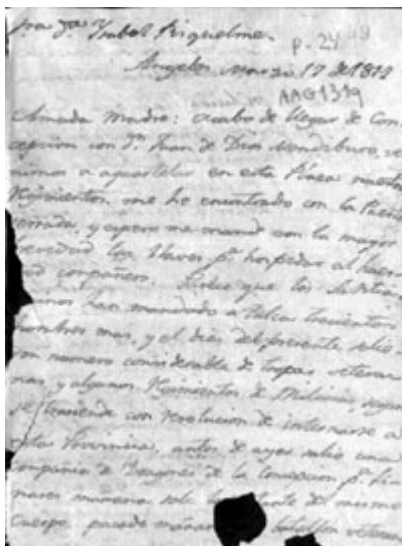 Sra Da Ysabel Riquelme.
p. 24
Angeles Marzo 17 de 1812
AAG1319
Amada Madre: acabo de llegar de Con
cepcion con Dn Juan de Dios Mendiburu, ve
nimos a aquartelar en esta Plaza nuestros
Regimientos, me he encontrado con la Puerta
cerrada, y espero me mande con la mayor
brevedad las llaves pa hospedar al
compañero. Sabe que los
han mandado a Talca trescientos
hombres mas, y el dies del presente salio
un numero considerable de tropas vetera
nas, y algunos Regimientos de Milicias, segun
se trasciende con resolucion de internarse a
esta Provincia, antes de ayer salio una
compañia de Dragones de la Concepcion pa Li
nares mañana sale el de mismo
Cuerpo, pasado mañana batallon